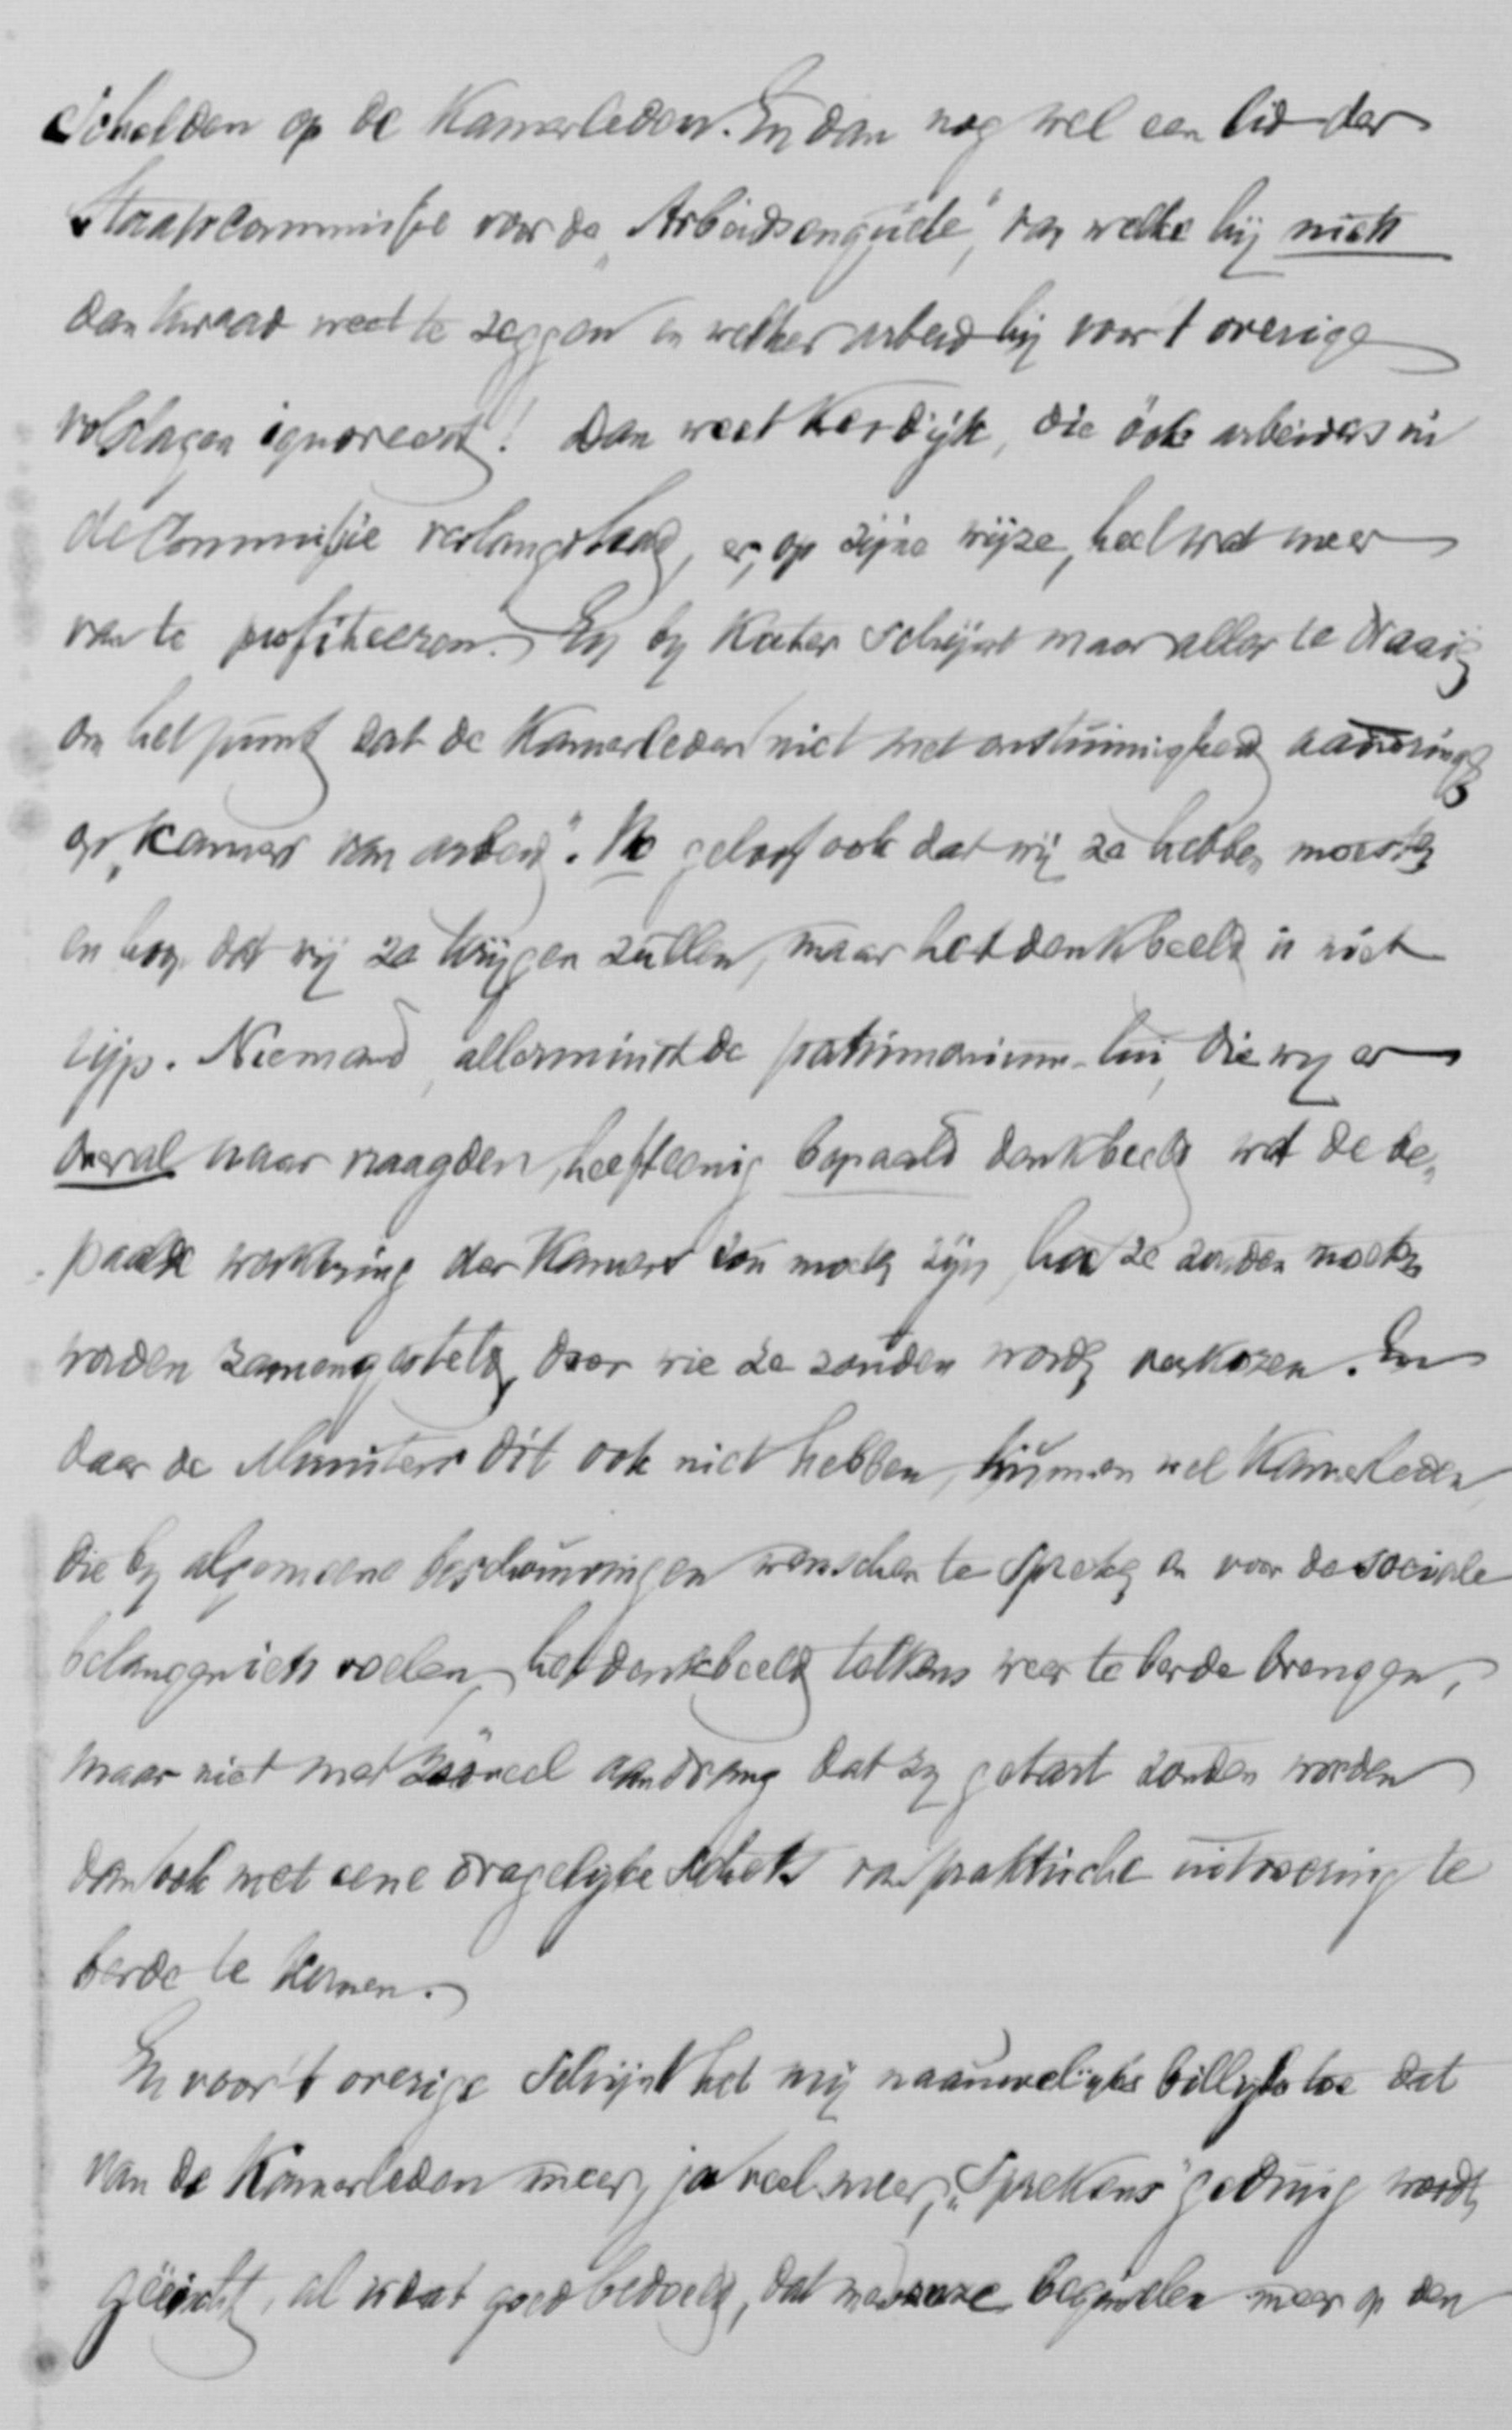 Schelden op de Kamerleden. En dan nog wel een lid der
Staatscommissie voor de „Arbeidsenquête", van welke hij niets
dan kwaad weet te zeggen en welker arbeid hij voor 't overige
volslagen ignoreert! Dan weet Kerdijk, die óók arbeiders in
de Commissie verlangd had, er, op zijne wijze, heel wat meer
van te profiteeren. En by Kater schijnt maar alles te draaien
om het punt dat de Kamerleden niet met onstuimigheid aandringen
op „Kamers van arbeid". Ik geloof ook dat wij ze hebben moeten
en hoop dat wij ze krijgen zullen, maar het denkbeeld is niet
rijp. Niemand, allerminst de patrimonium-lui, die wy er
overal naar vraagden, heeft eenig bepaald denkbeeld wat de be-
paalde werkkring der Kamers zou moeten zijn, hoe ze zouden moeten
worden zamengesteld, door wie ze zouden worden verkozen. En
daar de Ministers dit ook niet hebben, kunnen wel Kamerleden,
die by algemeene beschouwingen wenschen te spreken en voor de sociale
belangen iets voelen, het denkbeeld telkens weer te berde brengen,
maar niet met zóóveel aandrang dat zy getart zouden worden
dan ook met eene dragelyke schets van praktische uitvoering te
berde te komen.
En voor 't overige schijnt het mij naauwelijks billijk toe dat
van de Kamerleden meer, ja veel meer, „sprekens" gedurig wordt
geëischt, al is dat goed bedoeld, dat men onze beginselen meer op den